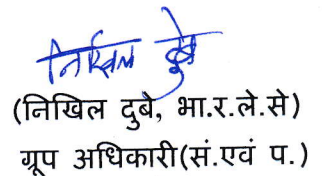 निखिल दुबे
(निखिल दुबे, भा.र.ले.से)
ग्रूप अधिकारी(सं.एवं प.)